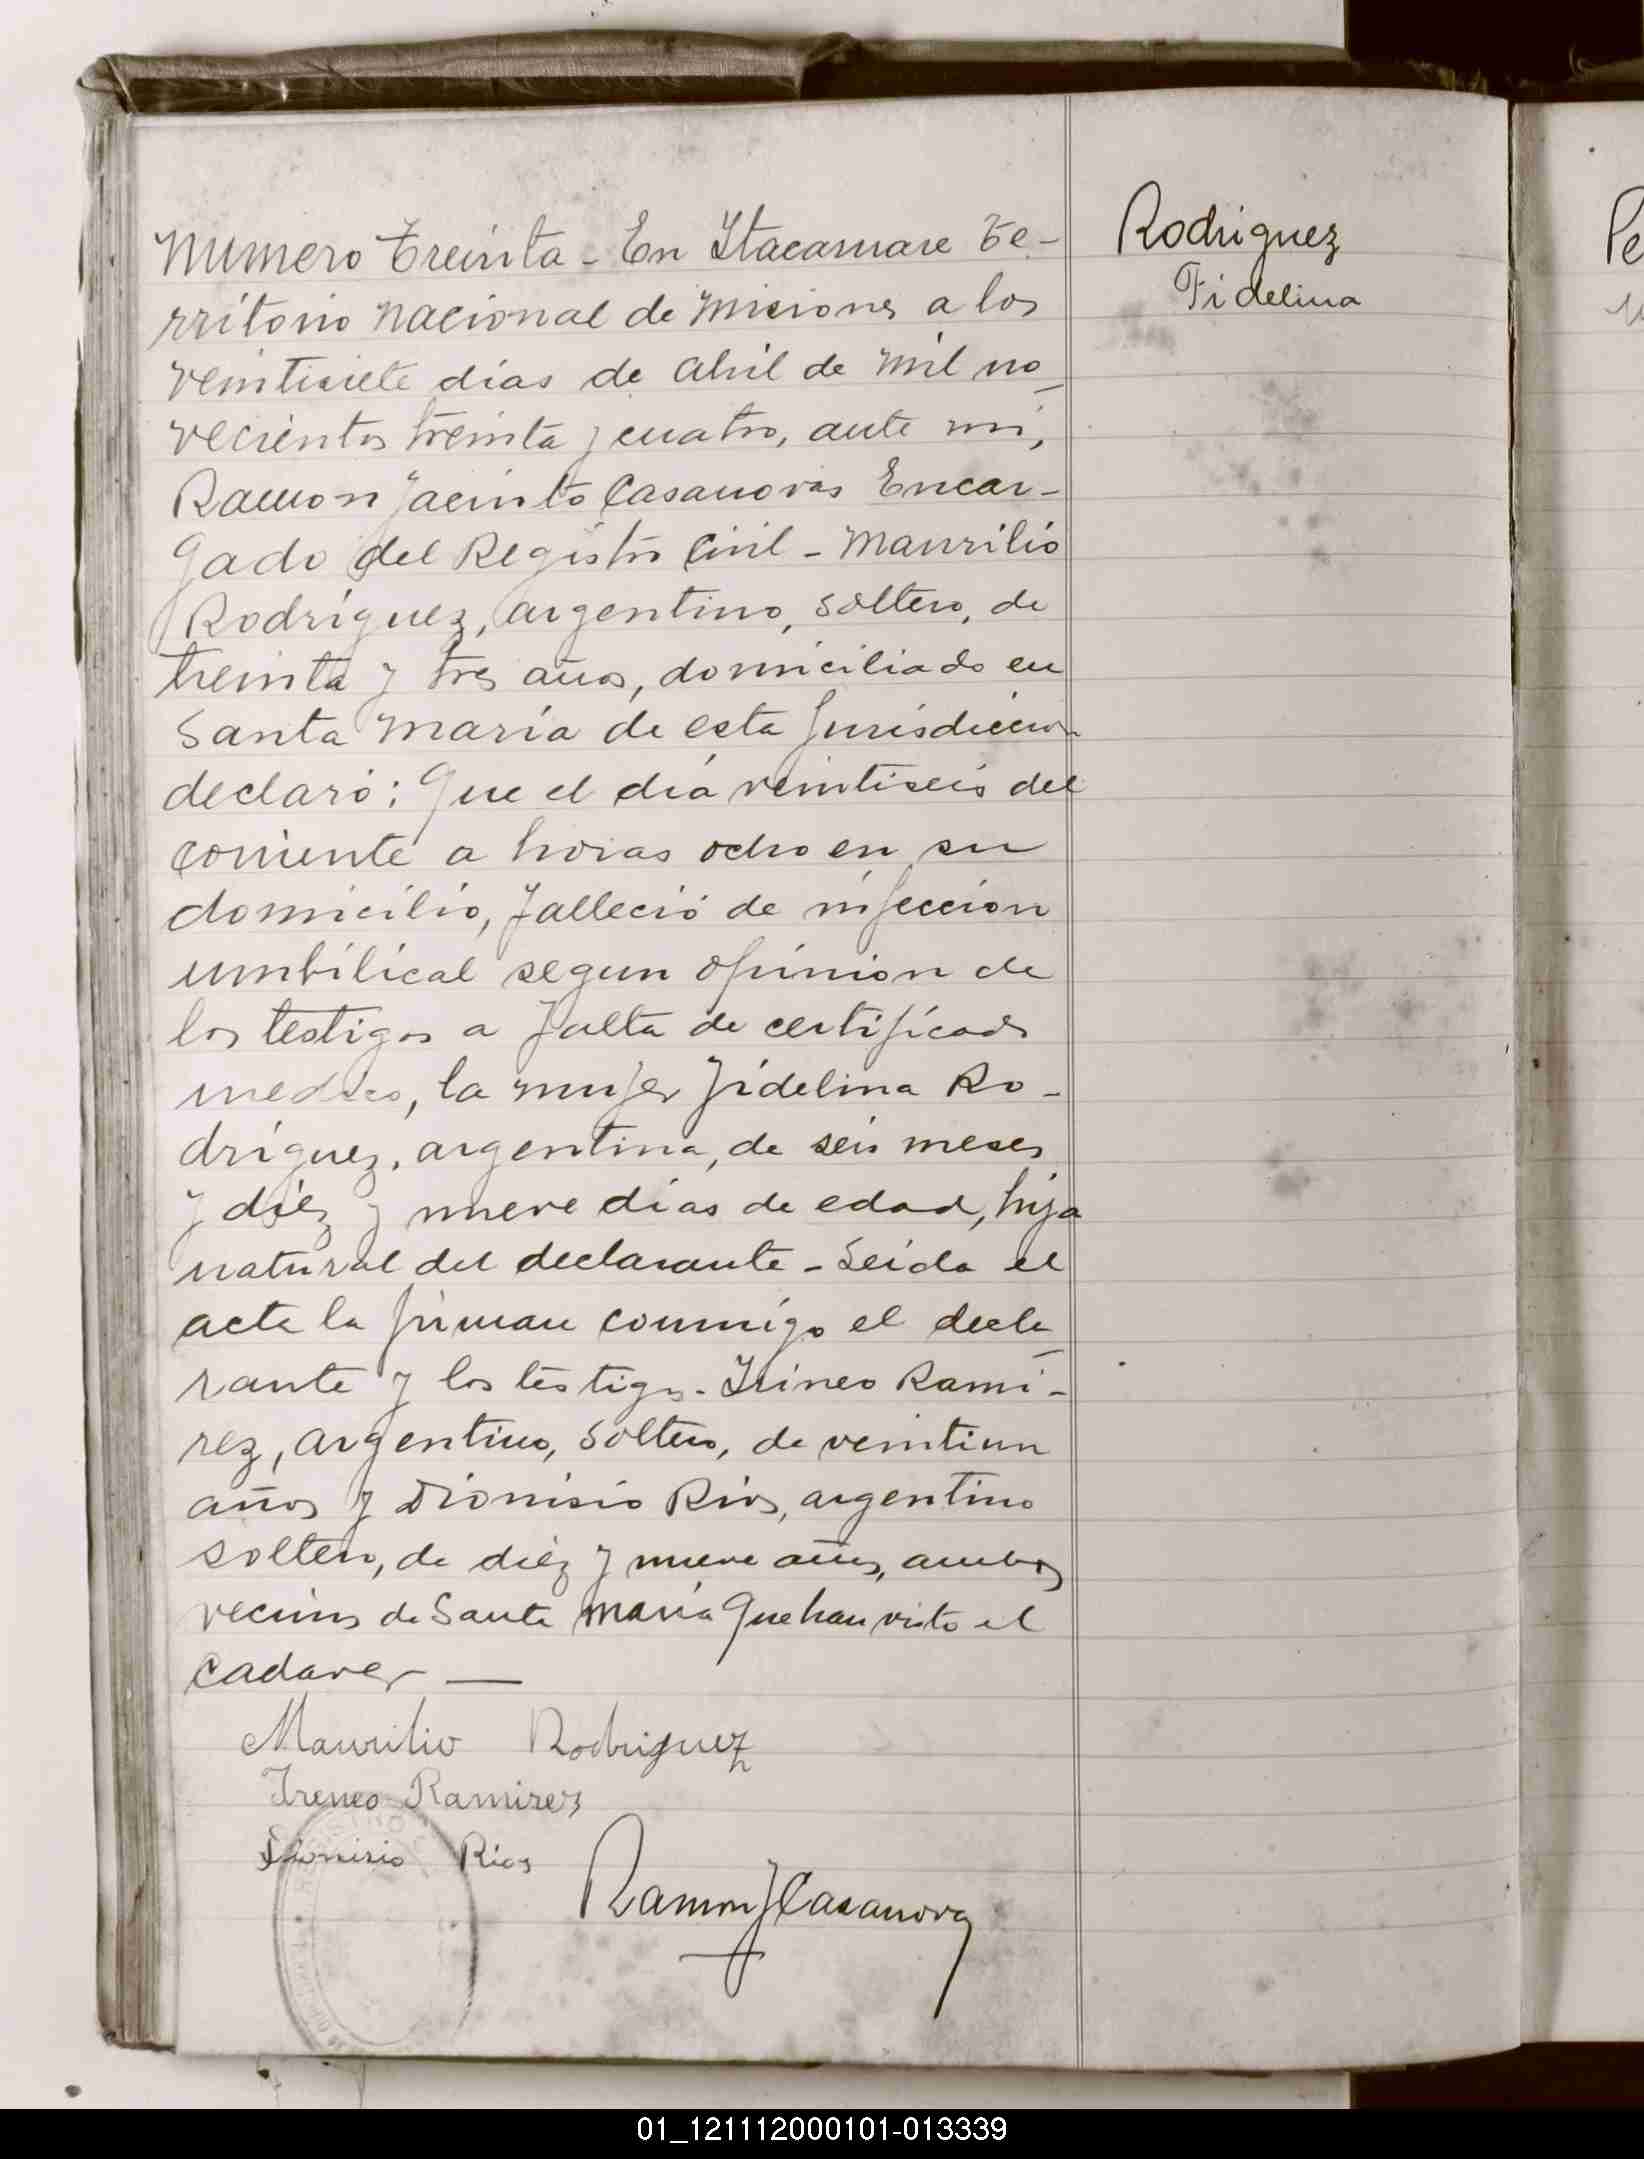 Numero treinta - En Itacaruare te-
rritorio nacional de Misiones a los
veintisiete días de Abril de mil no-
vecientos treinta y cuatro, ante mi,
Ramon Jacinto Casanovas Encar-
gado del Registro Civil - Maurilio
Rodríguez, argentino, soltero, de
treinta y tres años, domiciliado en
Santa María de esta Jurisdiccion
declaró: Que el día veintiseis del
corriente a horas ocho en su
domicilio, falleció de infeccion
umbilical segun opinion de
los testigos a falta de certificado
medico, la mujer Fidelina Ro-
dríguez, argentina, de seis meses
y diéz y nueve días de edad, hija
natural del declarante - Leida el
acta la firman conmigo el decla-
rante y los testigos - Irineo Rami-
rez, argentino, soltero, de veintiun
años y Dionisio Rios, argentino
soltero, de diéz y nueve años, ambos
vecinos de Santa María que han visto el
cadaver —
Maurilio Rodriguez
Ireneo Ramirez
Dionisio Rios
Ramon J Casanova
Rodriguez
Fidelina
Pe
01_121112000101-013339